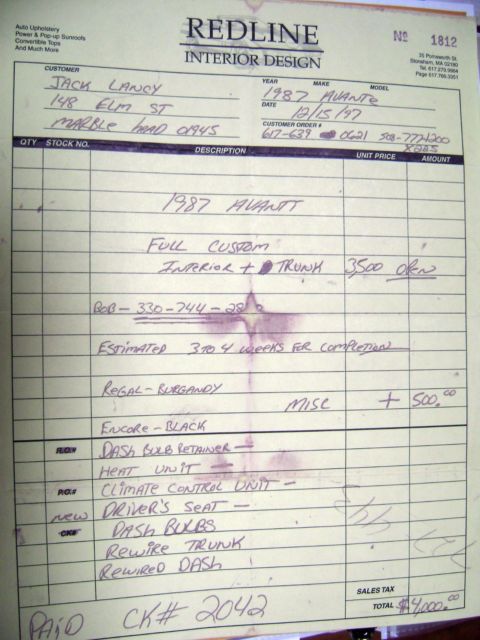 Auto Upholstery
Power & Pop-up Sunroofs
Convertible Tops
And Much More
REDLINE
INTERIOR DESIGN
No 1812
35 Pomeworth St.
Stoneham, MA 02180
Tel. 617.279.9964
Page 617.766.3351
CUSTOMER
JACK LANCY
148 ELM ST
MARBLE head 01945
YEAR MAKE MODEL
1987 AVANTE
DATE
12/15/97
CUSTOMER ORDER #
617-639 0621 508-777-1200
X285
QTY STOCK NO. DESCRIPTION UNIT PRICE AMOUNT
1987 AVANTI
FULL CUSTOM
INTERIOR + TRUNK 3,500 OPEN
BOB - 330-744-28
Estimated 3 TO 4 weeks FOR COMPLETION
REGAL - BURGANDY
MISC + 500.00
ENCORE - BLACK
R.O.# DASH BULB RETAINER —
HEAT UNIT —
P.O.# CLIMATE CONTROL UNIT —
new DRIVER'S SEAT —
CK# DASH BULBS
REWIRE TRUNK
REWIRED DASH
SALES TAX
TOTAL $4,000.00
PAID CK# 2042